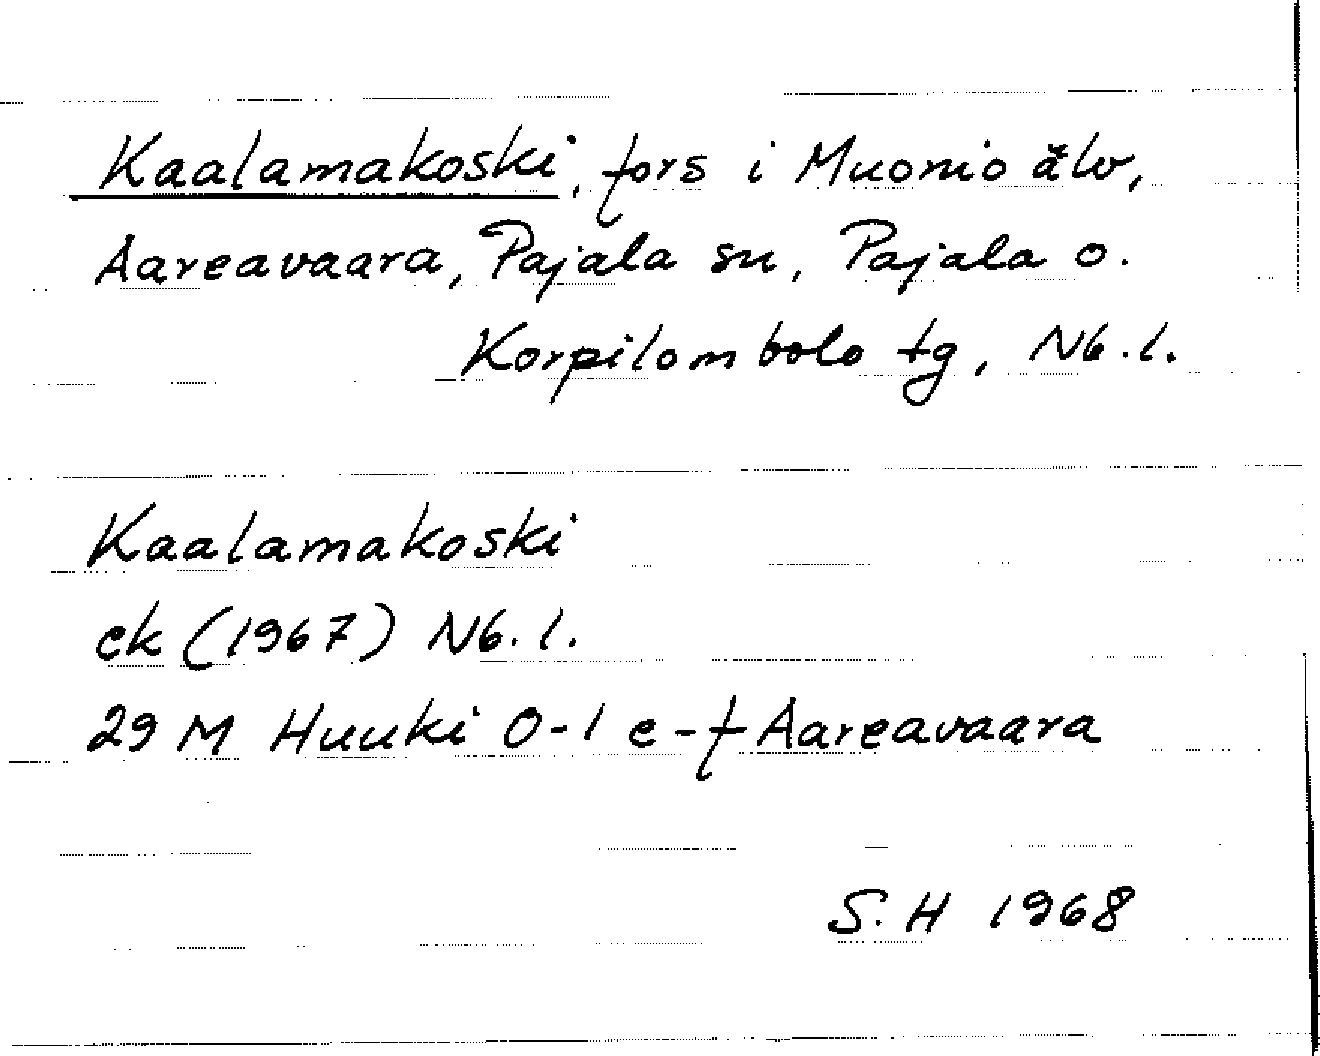 Kaalamakoski, fors i Muonio älv,
Aareavaara, Pajala sn, Pajala o.
Korpilombolo tg, Nb.l.
Kaalamakoski
ek (1967) Nb.l.
29 M Huuki 0-1 e-f Aareavaara
S.H 1968